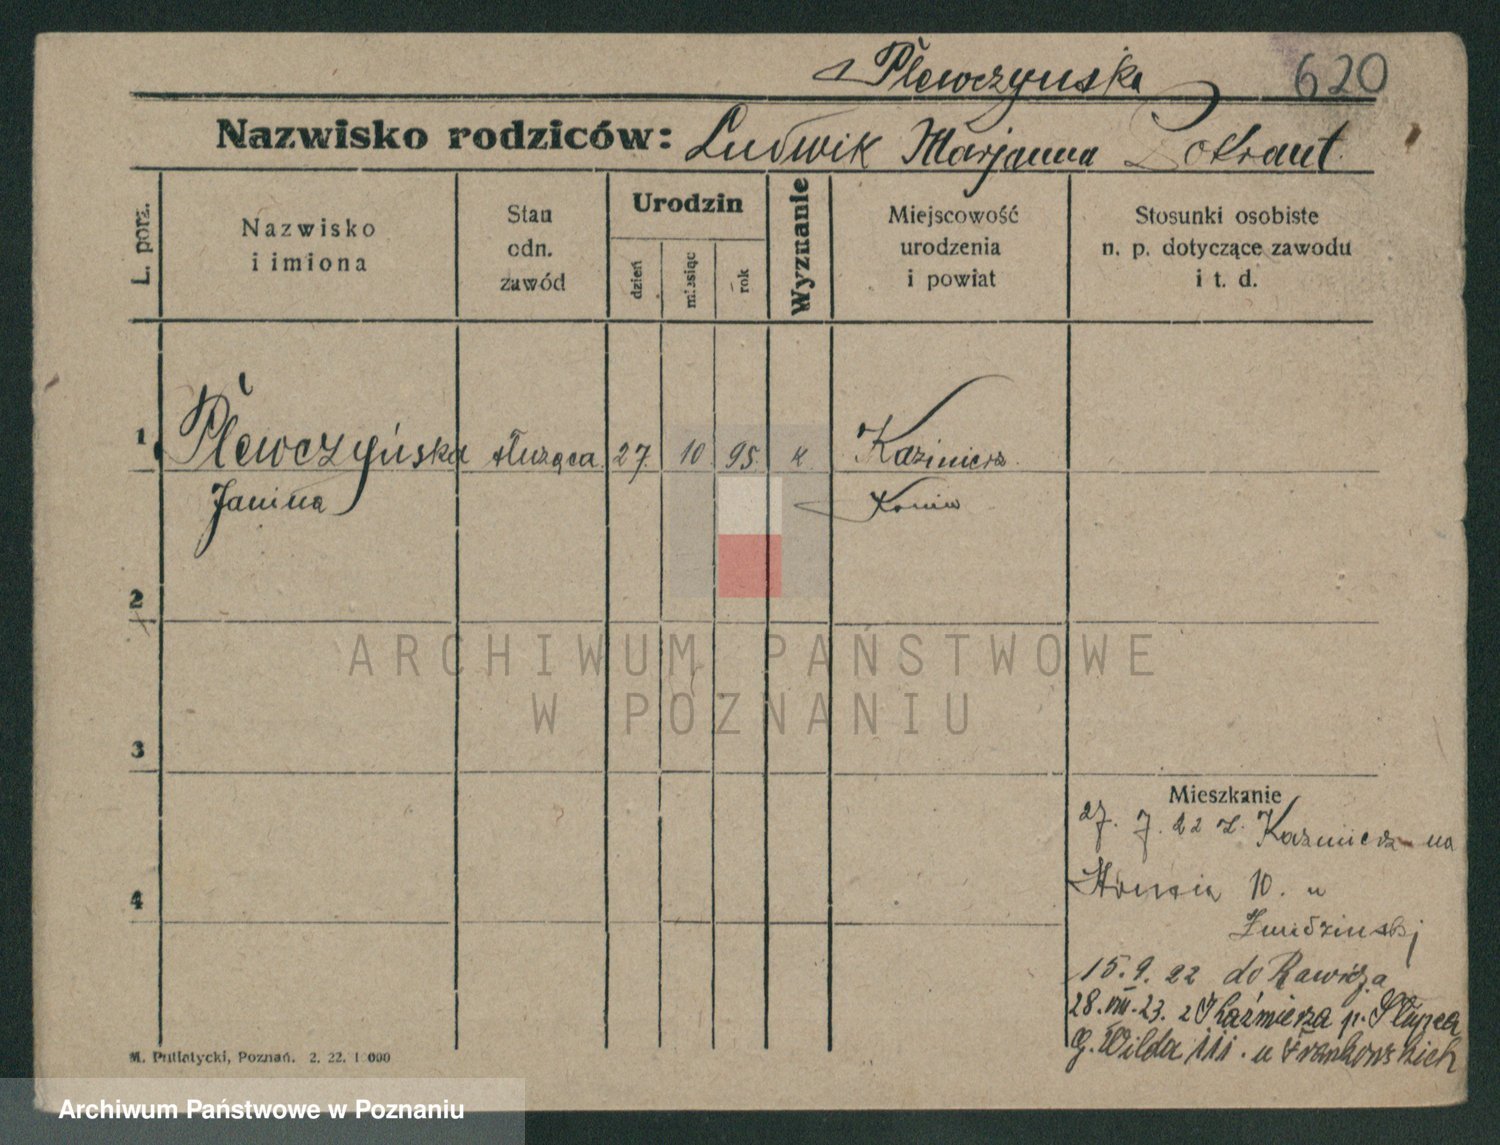 Plewczyńska
620
Nazwisko rodziców: Ludwik Marjanna Dokrant.
L. porz.
Nazwisko
i imiona
Stan
odn.
zawód
Urodzin
dzień
miesiąc
rok
Wyznanie
Miejscowość
urodzenia
i powiat
Stosunki osobiste
n. p. dotyczące zawodu
i t. d.
1 Plewczyńska służąca 27. 10. 95. k. Kazimierz
Janina Konin
2
3
4
Mieszkanie
27. 7. 22 z. Kazmierz na
10. u
Żmudzinskij
15. 9. 22 do Rawicza
28. VIII. 23. z Kaźmierza p. Słupca
g. Wilda 111. u Frankowskich
M. Putiatycki, Poznań. 2. 22. 1 000
ARCHIWUM PAŃSTWOWE
W POZNANIU
Archiwum Państwowe w Poznaniu